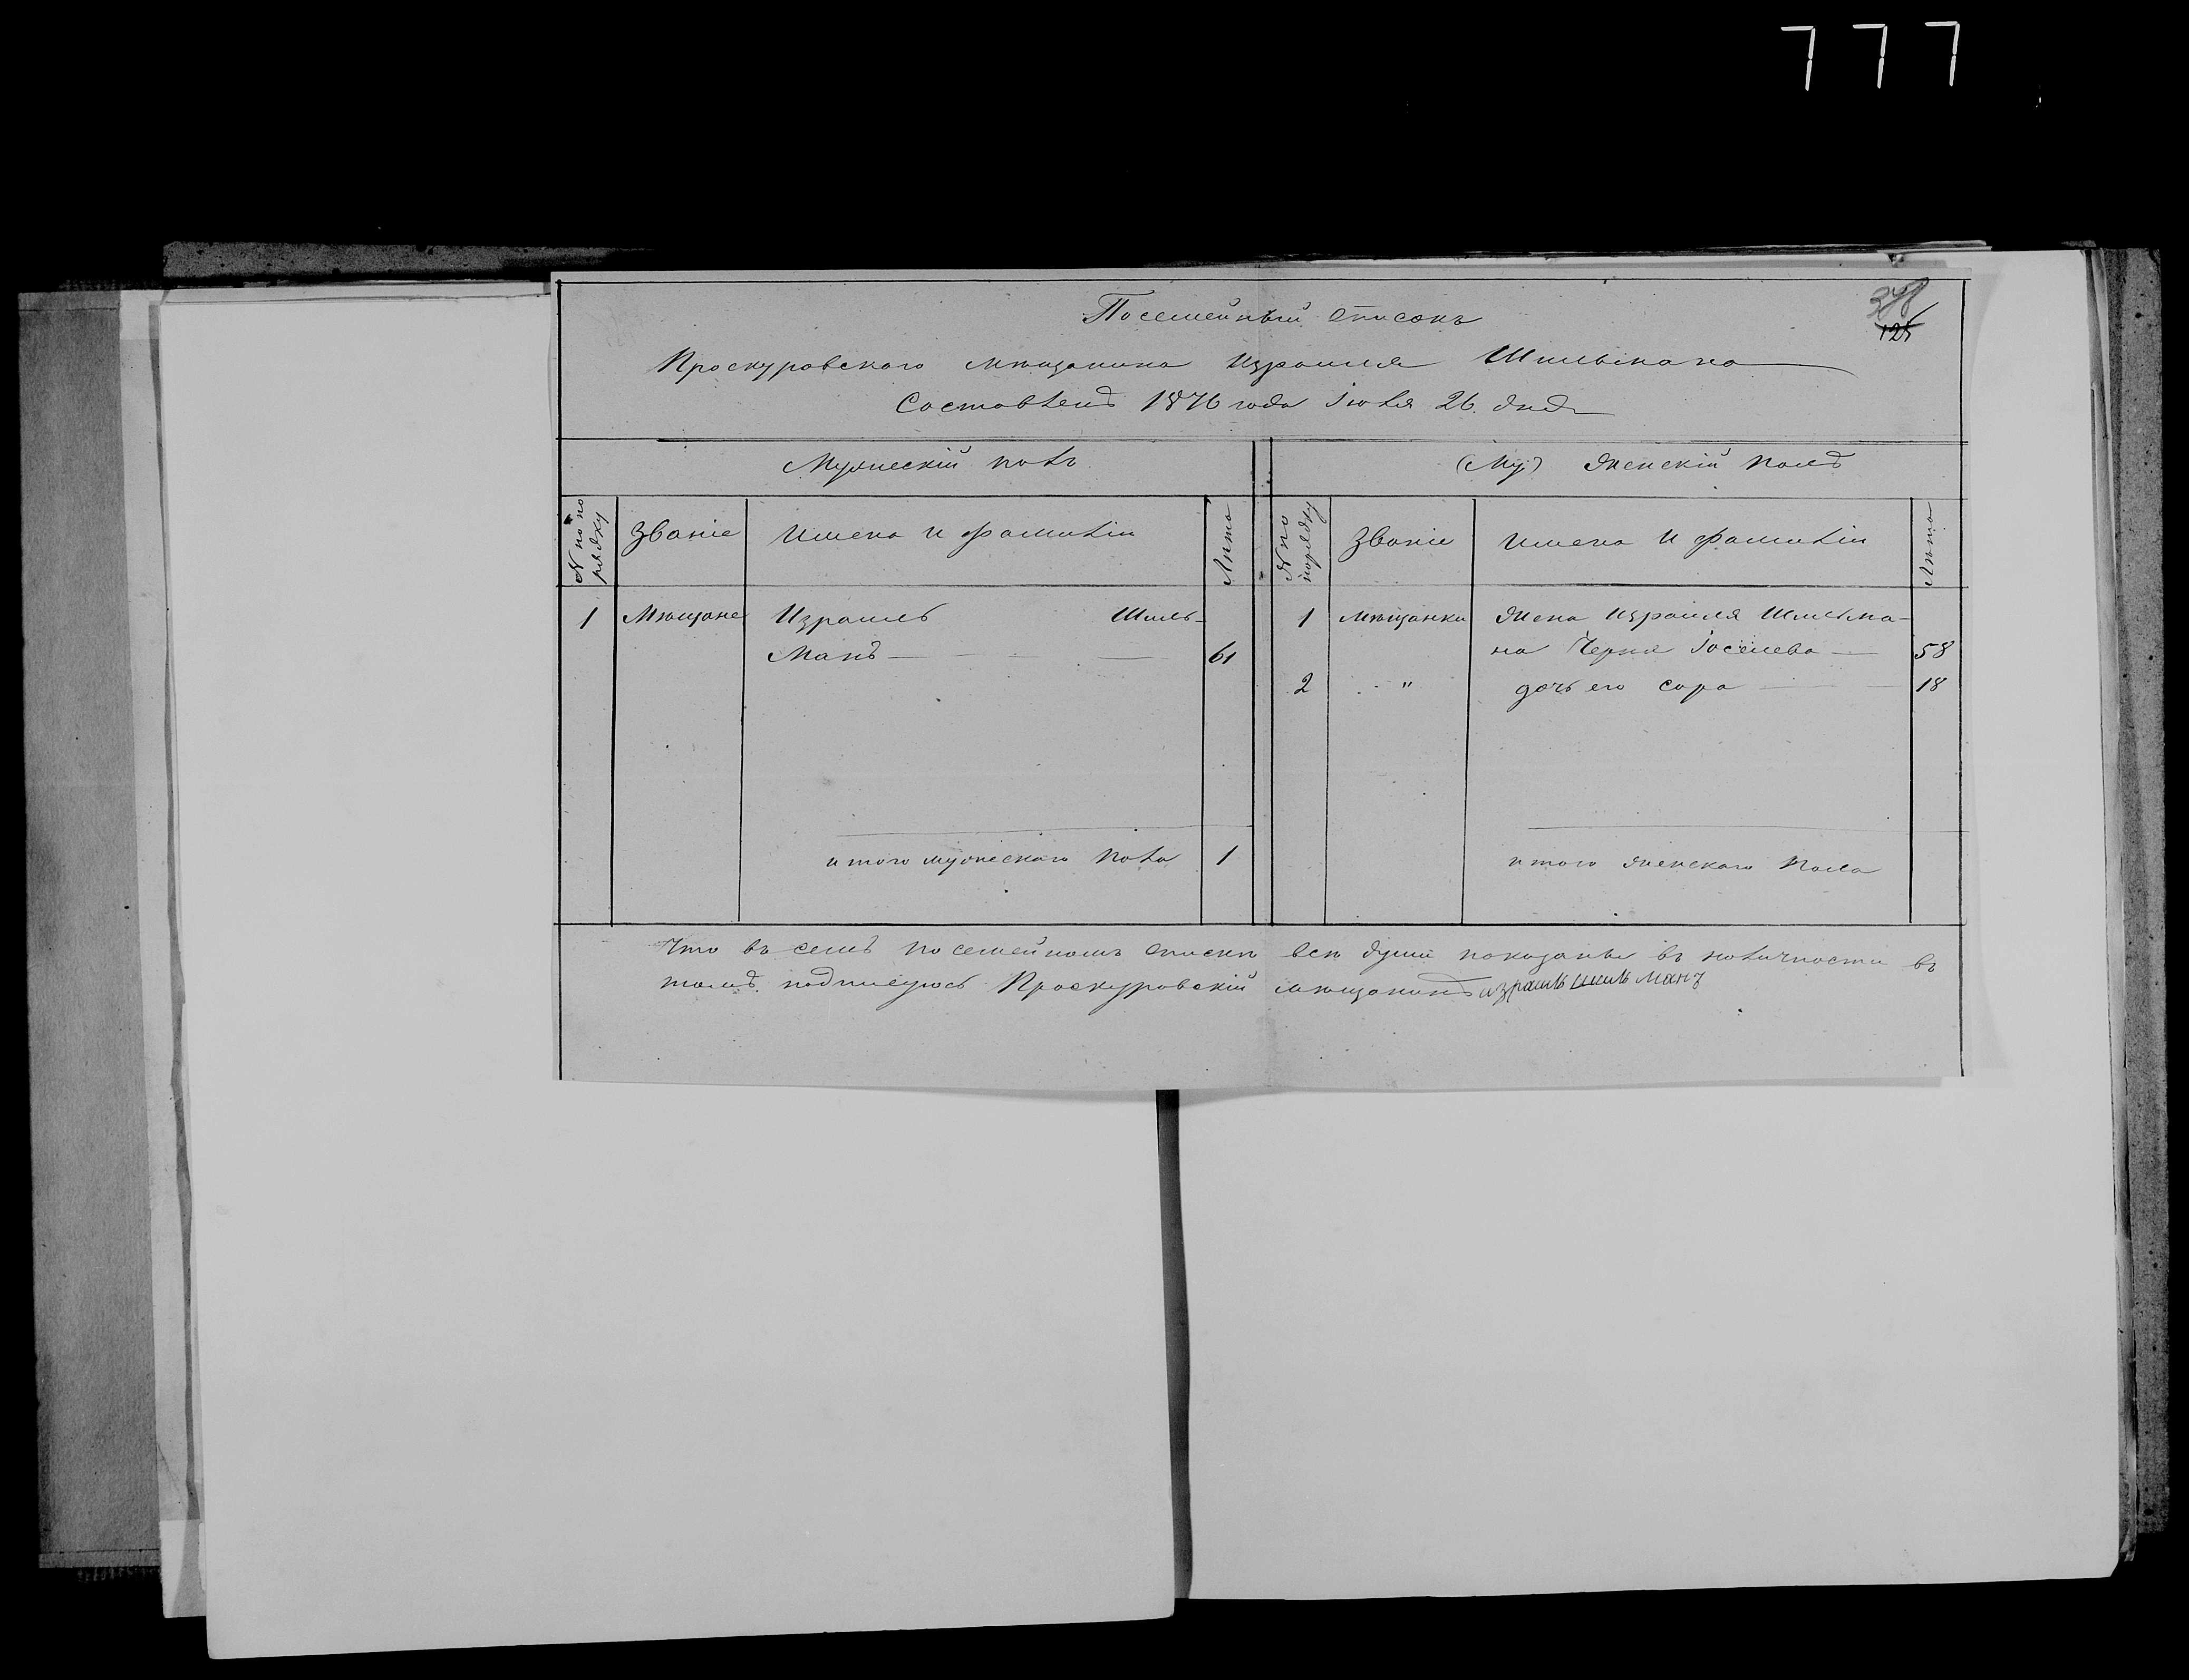 777
125
Посемейный списокъ
Проскуровскаго мѣщанина Израиля Шильмана
Составленъ 1876 года Іюля 26 дня
Мужескій полъ
(Му) Женскій полъ
N по по рядку
Званіе
Имена и фамиліи
Лѣта
N по порядку
Званіе
Имена и фамиліи
Лѣта
1 Мѣщане Израиль Шиль-
Манъ 61
1 Мѣщанки Жена Израиля Шильма-
на Черня Іоселева 58
2 " дочь его Сора 18
итого мужескаго пола 1
итого женскаго пола
Что въ семъ посемейномъ списки всѣ души показаны въ наличности въ
томъ подписуюсь Проскуровскій мѣщанинъ израиль шильманъ